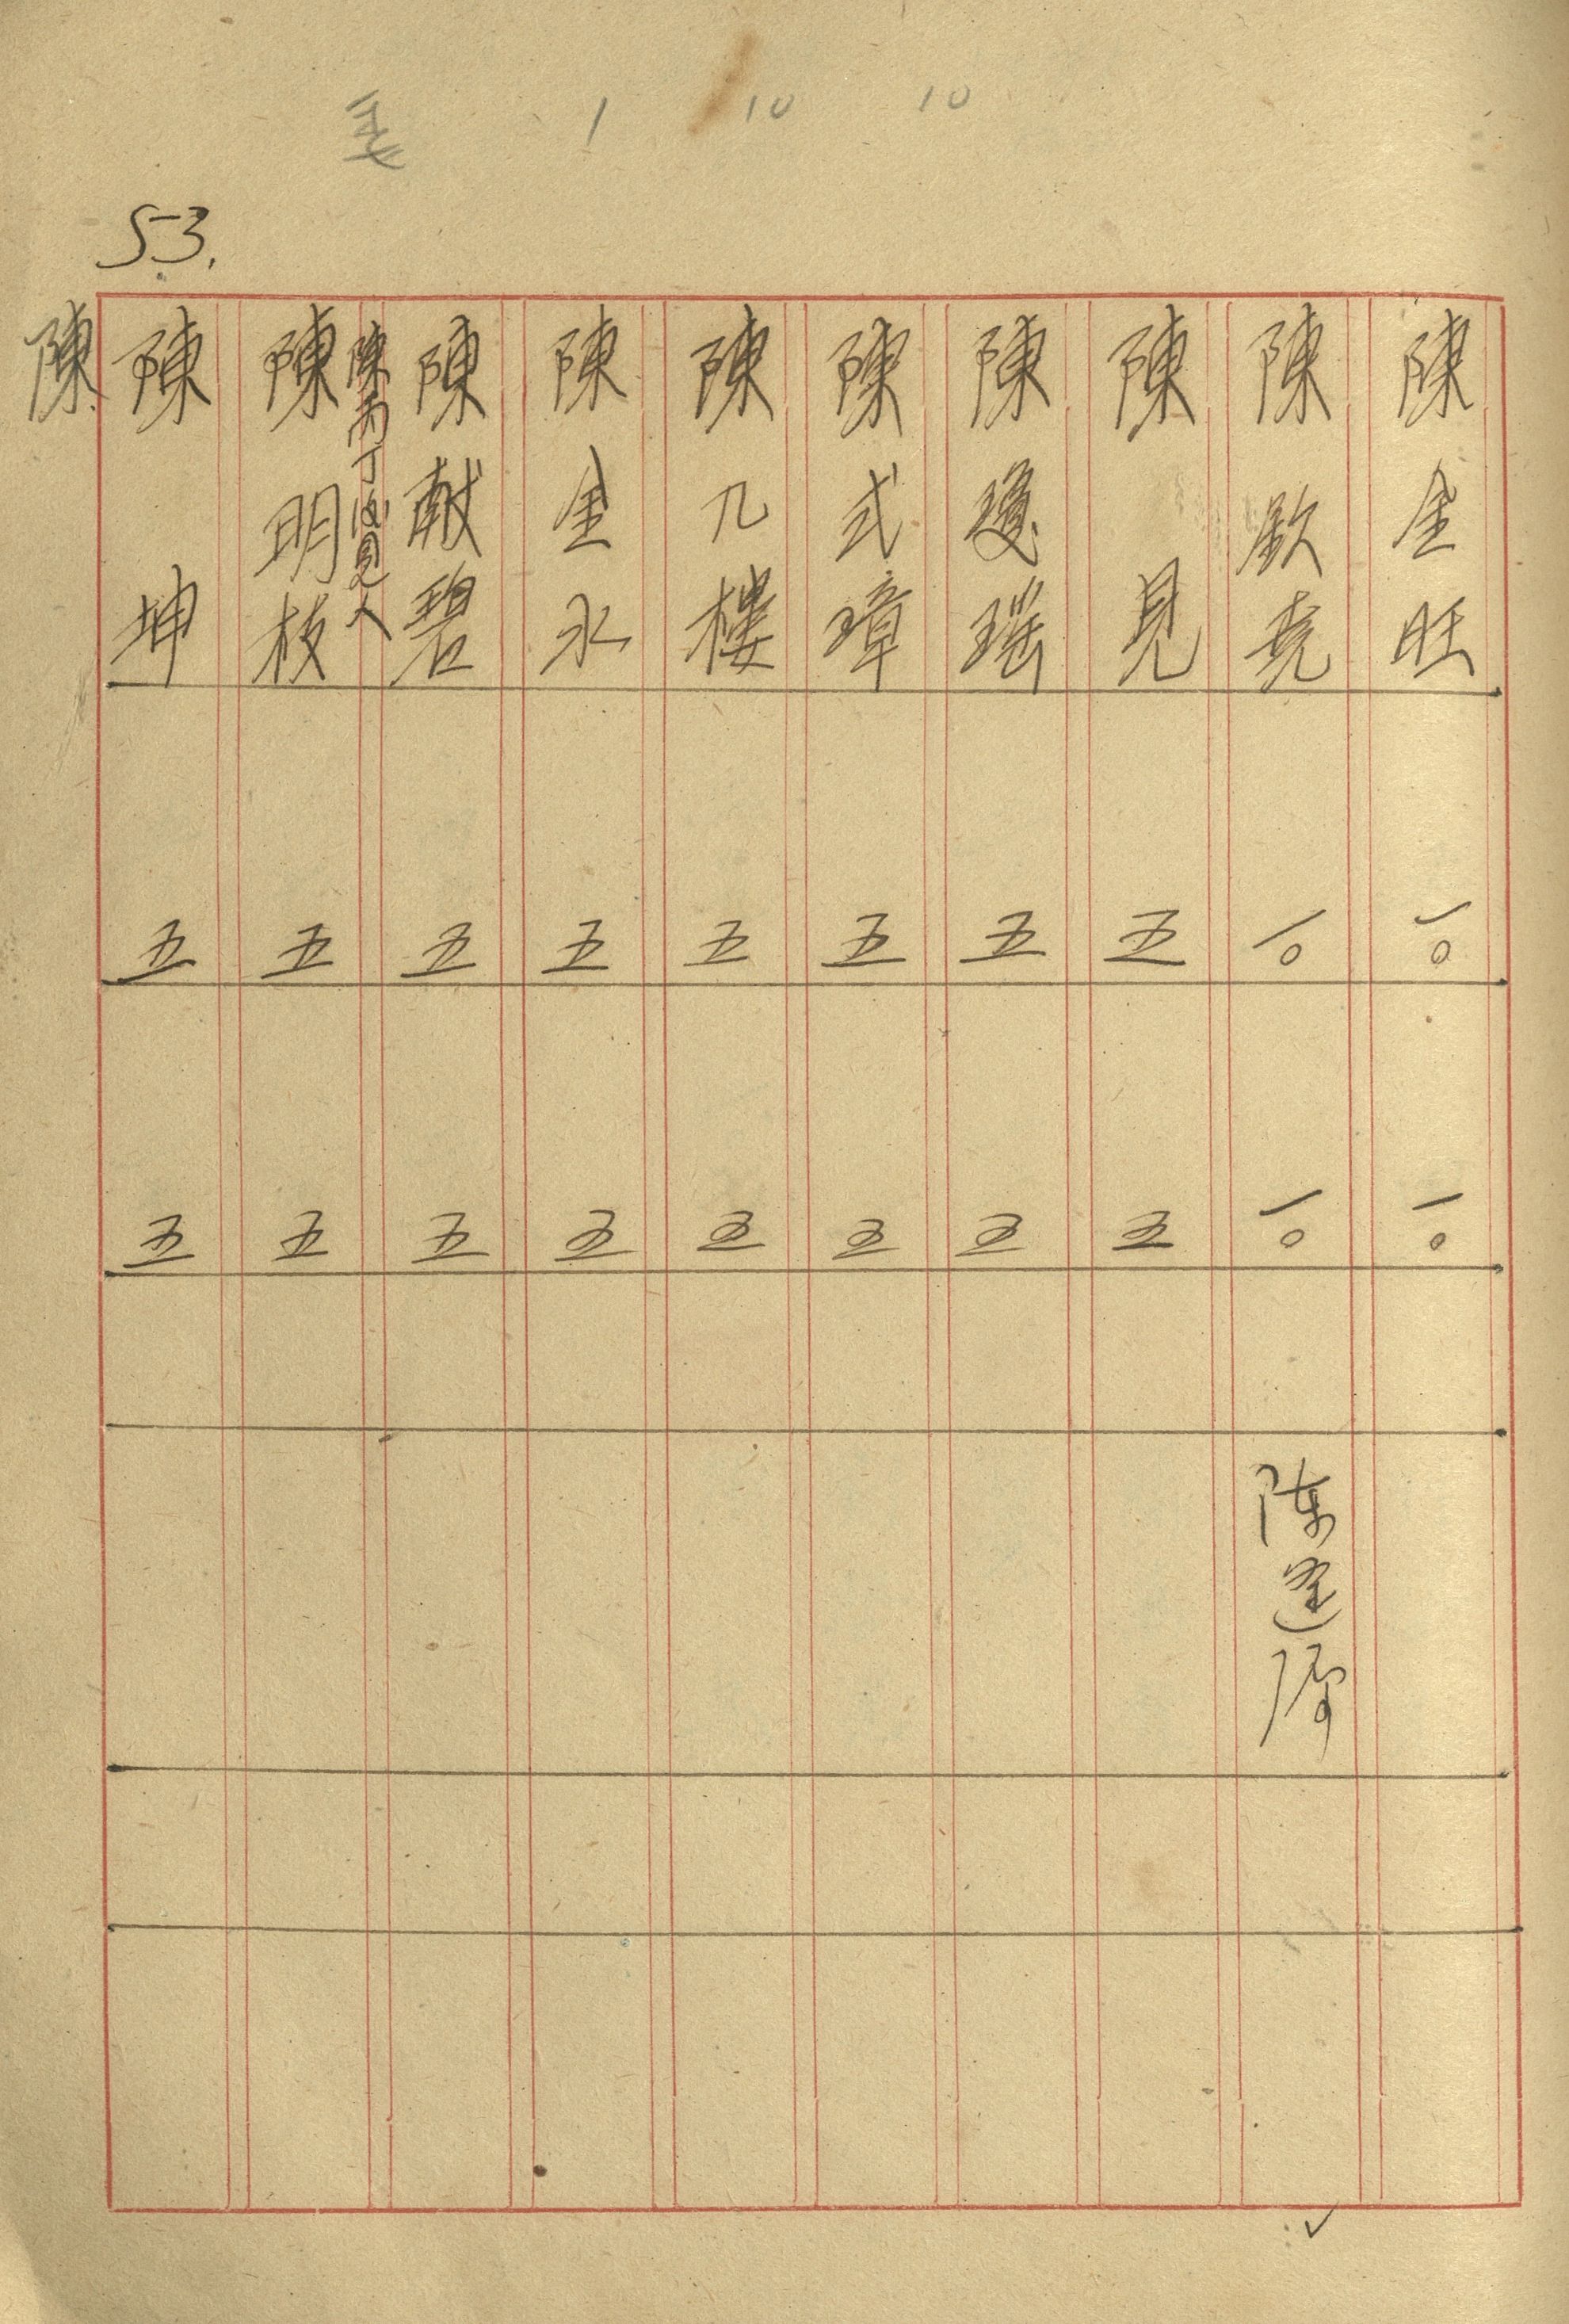 1 10 10
53.
陳金旺 一〇 一〇
陳欽堯 一〇 一〇
陳見 五 五
陳瓊瑤 五 五
陳式璋 五 五
陳几樓 五 五
陳金水 五 五
陳献碧 五 五
陳丙丁
陳明枝 五 五
陳坤 五 五
陳